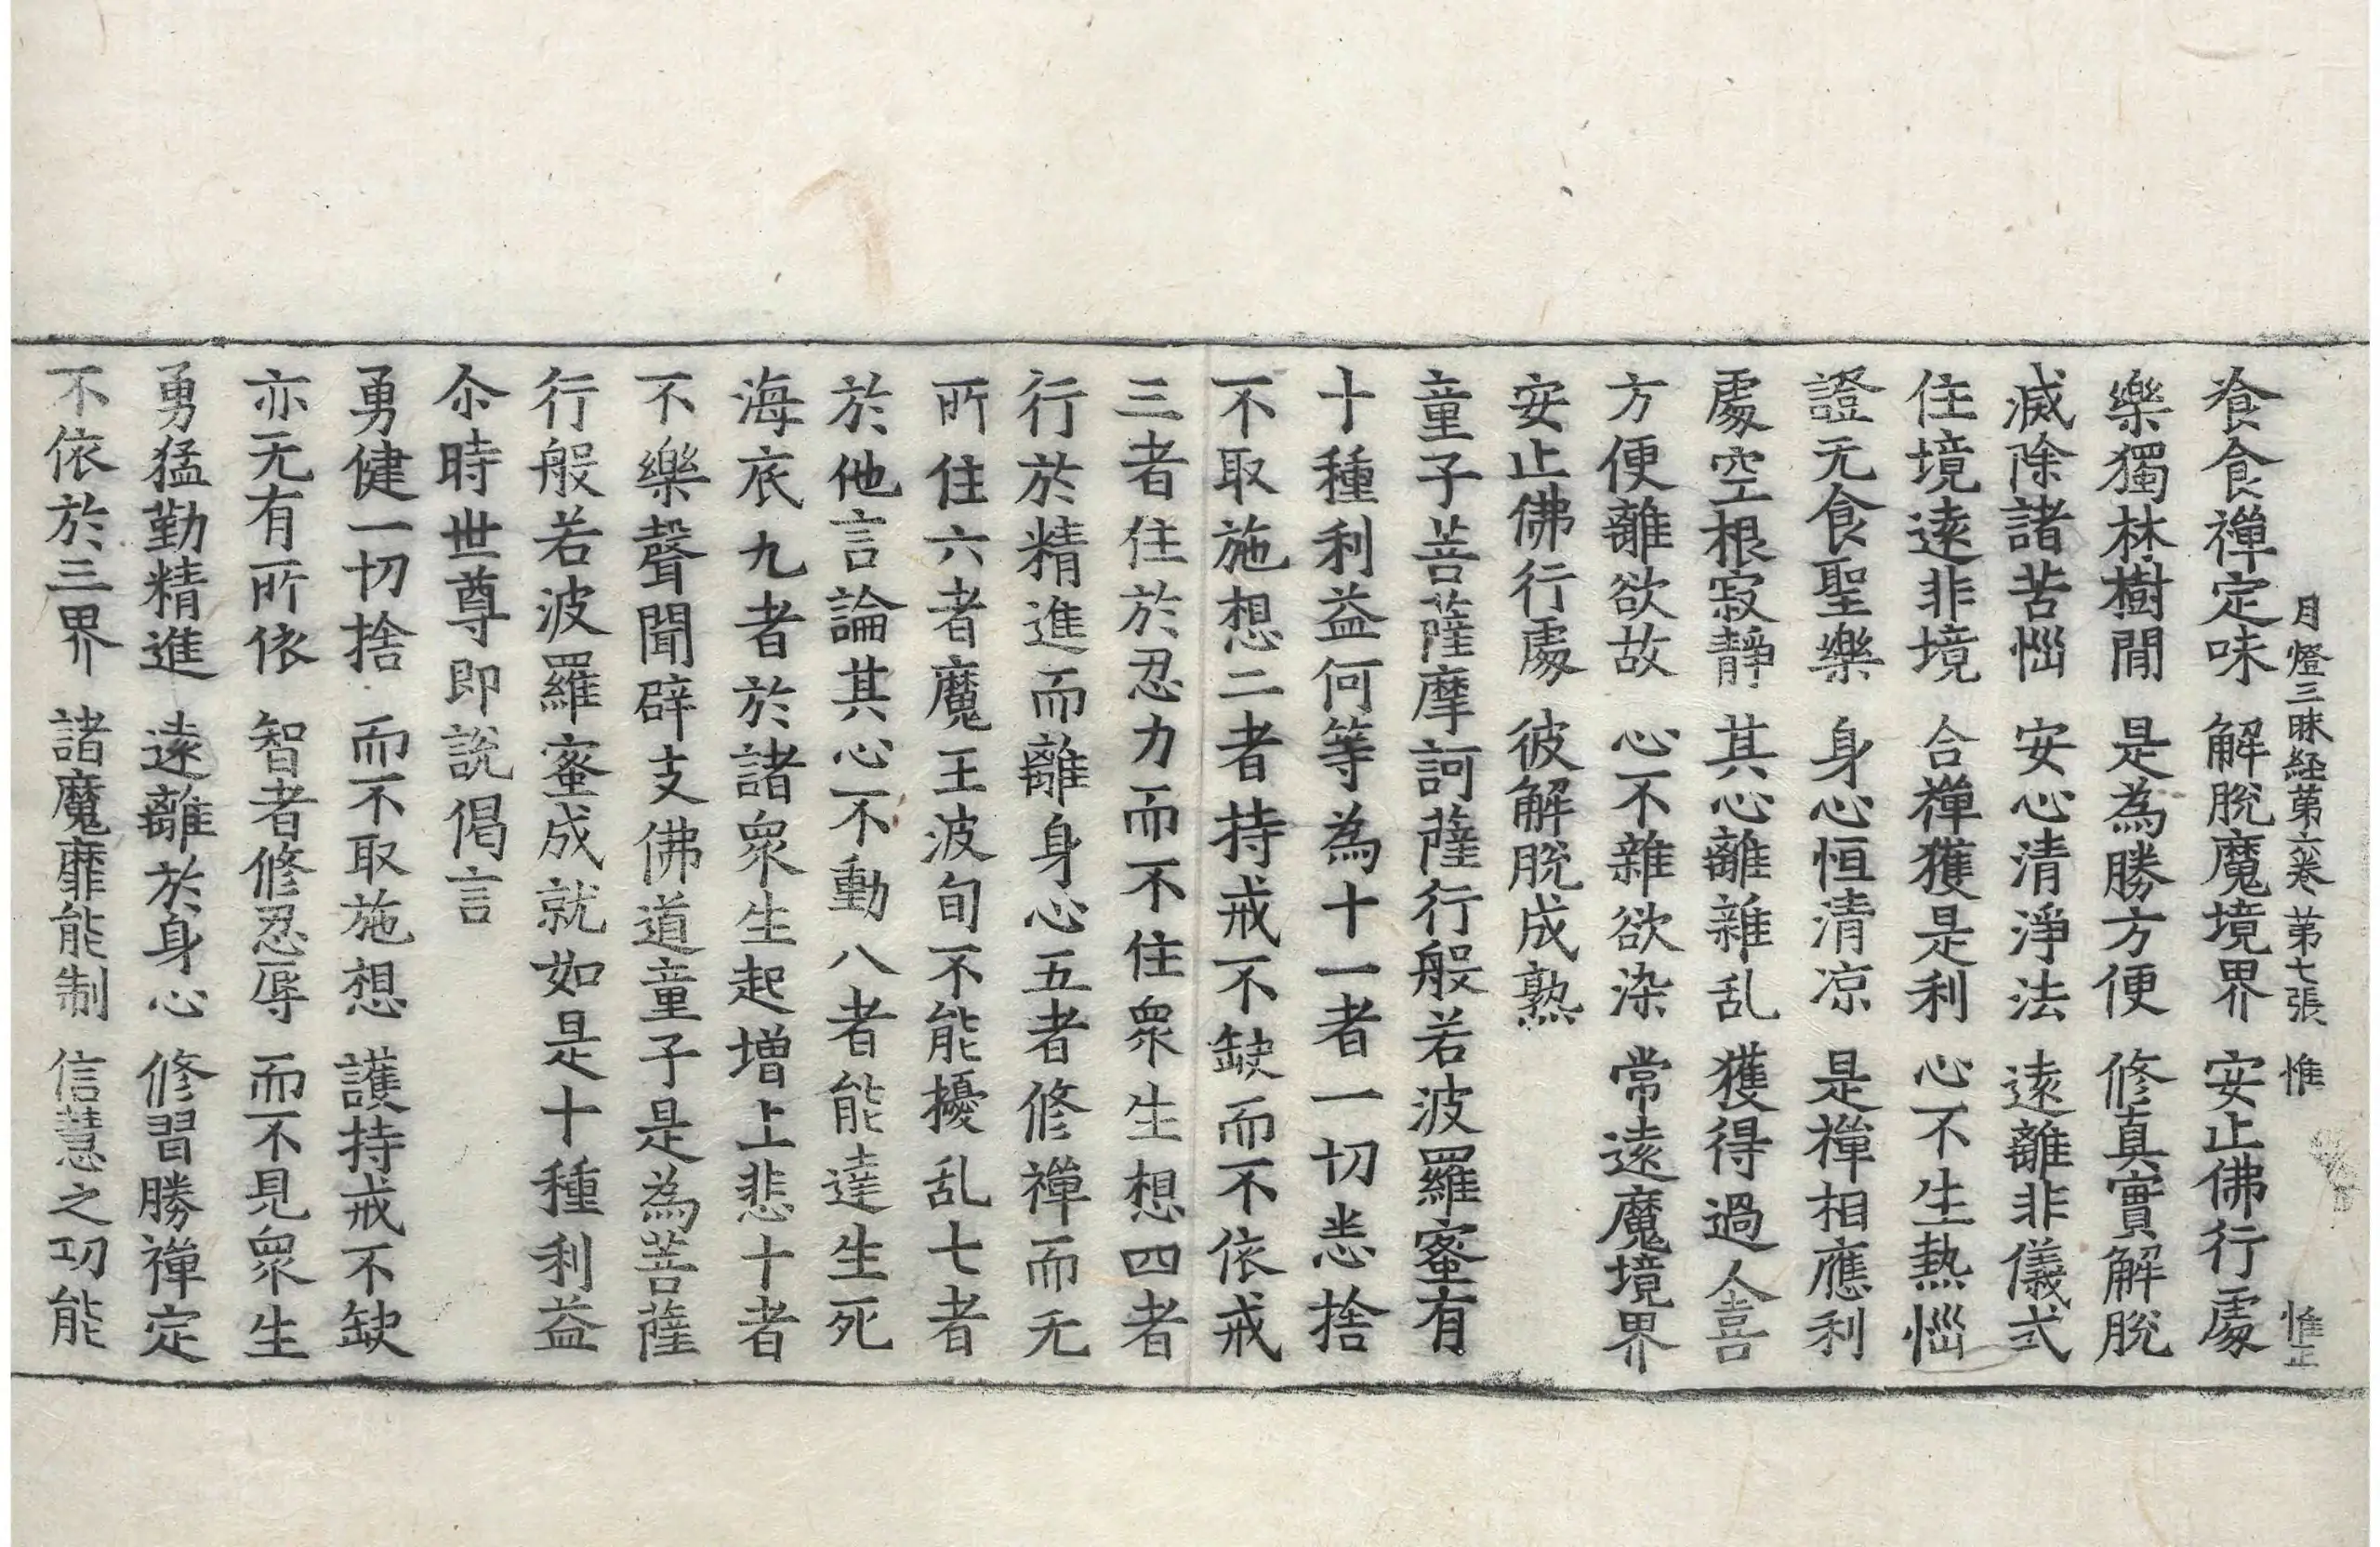 月燈三昧経苐六卷 苐七張 惟 惟正
飡食禪定味 解脫魔境界 安止佛行處
樂獨林樹閒 是為勝方便 修真實解脫
滅除諸苦惱 安心清淨法 遠離非儀式
住境遠非境 合禪獲是利 心不生熱惱
證无食聖樂 身心恒清凉 是禪相應利
處空根寂靜 其心離雜乱 獲得過人喜
方便離欲故 心不雜欲染 常遠魔境界
安止佛行處 彼解脫成熟
童子菩薩摩訶薩行般若波羅蜜有
十種利益何等為十一者一切恚捨
不取施想二者持戒不缺而不依戒
三者住於忍力而不住衆生想四者
行於精進而離身心五者修禪而无
所住六者魔王波旬不能擾乱七者
於他言論其心不動八者能達生死
海底九者於諸衆生起增上悲十者
不樂聲聞辟支佛道童子是為菩薩
行般若波羅蜜成就如是十種利益
尒時世尊即說偈言
勇健一切捨 而不取施想 護持戒不缺
亦无有所依 智者修忍辱 而不見衆生
勇猛勤精進 遠離於身心 修習勝禪定
不依於三界 諸魔靡能制 信慧之功能